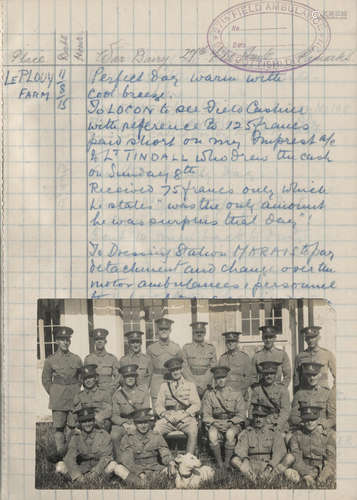 FIELD AMBULANCE
No
DATE
Place Date Hour War Diary 29th
LE PLOUY 11 Perfect Day warm with
FARM 8 cool breeze.
15 To LOCON to see Field Cashier
with reference to 125 francs
paid short on my Imprest a/c
Lt TINDALL who drew the cash
on Sunday 8th
Received 75 francs only which
he states "was the only amount
he was surplus that day"!
To Dressing Station MARAIS to pay
detachment and change over the
motor ambulances, personnel